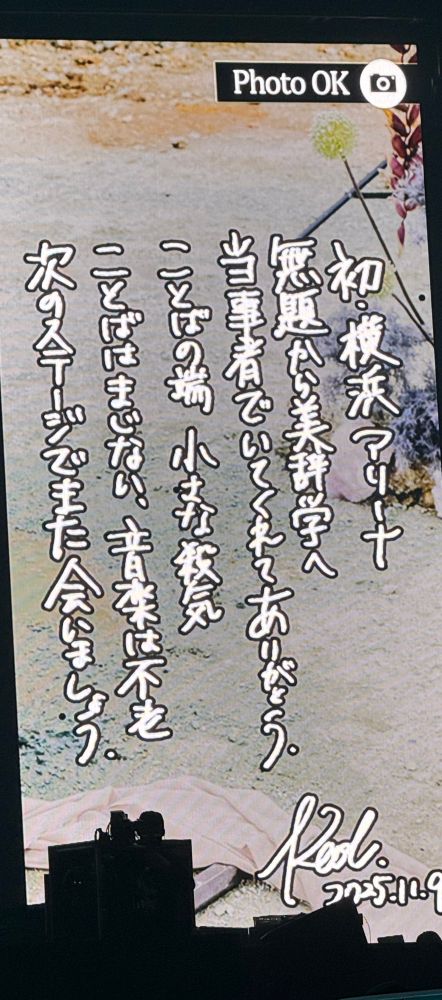 Photo OK
初・横浜アリーナ
無題から美辞学へ
当事者でいてくれてありがとう.
ことばの端 小さな殺気
ことばはまじない、音楽は不老
次のステージでまた会いましょう.
Reol.
2025.11.9